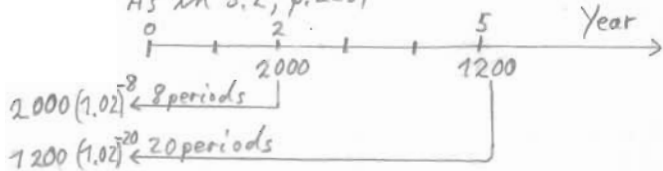 0 2 5 Year
2000 1200
2000(1.02)^-8 8 periods
1200(1.02)^-20 20 periods